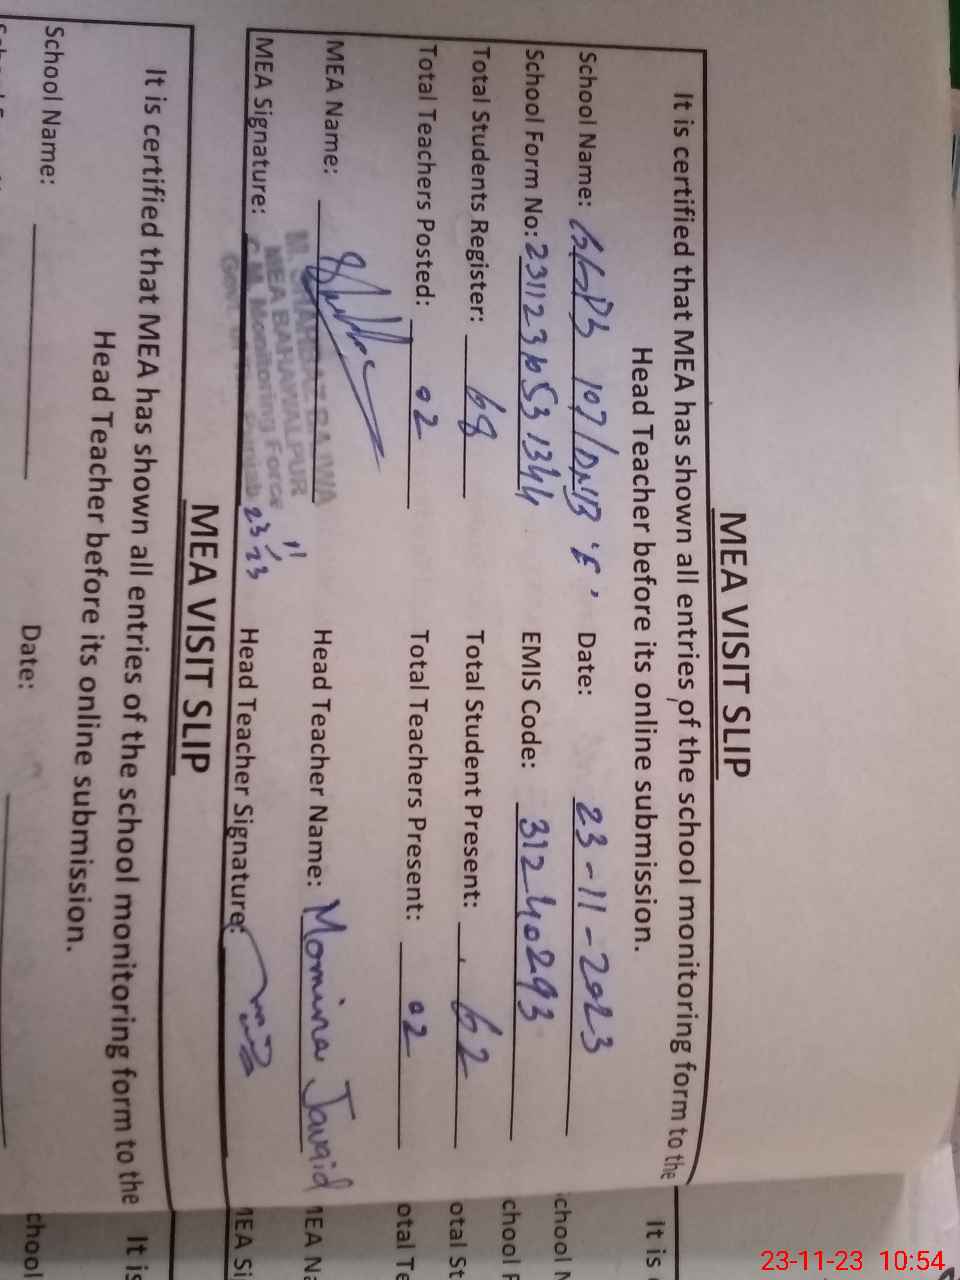 MEA VISIT SLIP
It is certified that MEA has shown all entries of the school monitoring form to the
Head Teacher before its online submission.
School Name: GGPS 107/DNB 'E' Date: 23-11-2023
School Form No: EMIS Code: 31240293
Total Students Register: 68 Total Student Present: 62
Total Teachers Posted: 02 Total Teachers Present: 02
MEA Name: Head Teacher Name: Momina Javaid
MEA Signature: Head Teacher Signature:
MEA BAHAWALPUR
C.M. Monitoring Force
MEA VISIT SLIP
It is certified that MEA has shown all entries of the school monitoring form to the
Head Teacher before its online submission.
School Name: Date:
It is
23-11-23 10:54